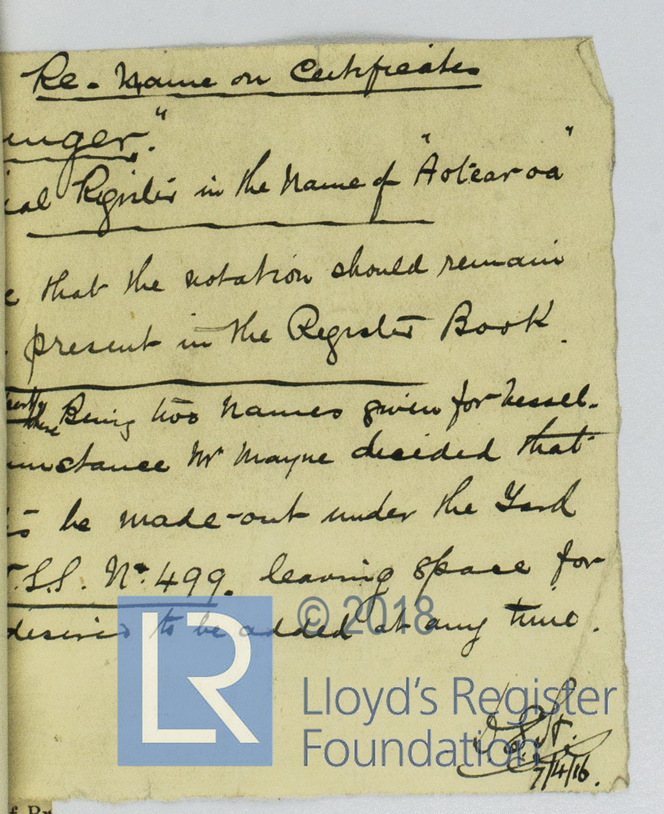 Re-Name on Certificates
unger."
ial Register in the Name of "Aotearoa"
e that the notation should remain
present in the Register Book.
Being two names given for vessel.
umstance Mr Mayne decided that
to be made-out under the Yard
S.S. No. 499. leaving space for
desired to be added at any time.
7/4/16.
LR
© 2018
Lloyd's Register
Foundation